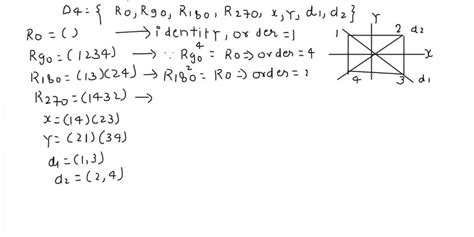 D4 = { R0, R90, R180, R270, x, Y, d1, d2 }
R0 = ( ) → identity, order = 1
R90 = (1234) → ∵ R90^4 = R0 ⇒ order = 4
R180 = (13)(24) → R180^2 = R0 ⇒ order = 2
R270 = (1432) →
x = (14)(23)
Y = (21)(34)
d1 = (1,3)
d2 = (2,4)
Y
1 2 d2
x
4 3 d1